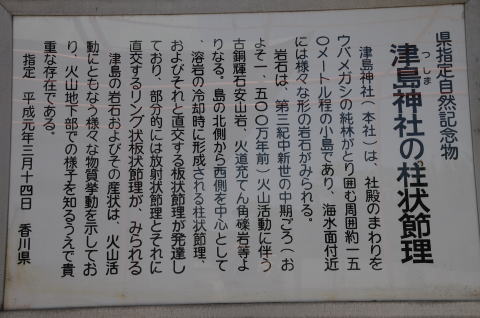 県指定自然記念物
つしま
津島神社の柱状節理
津島神社(本社)は、社殿のまわりを
ウバメガシの純林がとり囲む周囲約一五
〇メートル程の小島であり、海水面付近
には様々な形の岩石がみられる。
岩石は、第三紀中新世の中期ごろ(お
よそ一、五〇〇万年前)火山活動に伴う
古銅輝石安山岩、火道充てん角礫岩等よ
りなる。島の北側から西側を中心として
、溶岩の冷却時に形成される柱状節理、
およびそれと直交する板状節理が発達し
ており、部分的には放射状節理とそれに
直交するリング状板状節理が、みられる
津島の岩石およびその産状は、火山活
動にともなう様々な物質挙動を示してお
り、火山地下部での様子を知るうえで貴
重な存在である。
指定 平成元年三月十四日 香川県